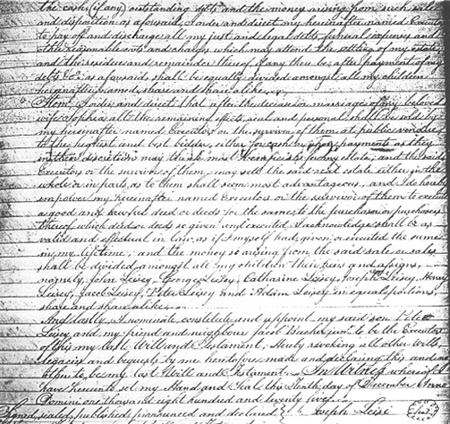 the cash (if any) outstanding debts and the money arising from such sales
and disposition as aforesaid, I order and direct my hereinafter named Executors
to pay off and discharge all my just and legal debts, funeral expenses and
the reasonable costs and charges, which may attend the settling of my estate
and the residue and remainder thereof, if any then be, after payment of my
debts &c. as aforesaid shall be equally divided amongst all my children
hereinafter named, share and share alike.
Item. I order and direct that after the decease or marriage of my beloved
wife Sophia all the remaining effects, real and personal shall be sold by
my hereinafter named Executors or the survivor of them at public vendue
to the highest and best bidder, either for cash or upon payments as they
in their discretion may think most beneficial for my estate, and the said
Executors or the survivor of them, may sell the said real estate either in the
whole or in parts, as to them shall seem most advantageous, and I do hereby
empower my hereinafter named Executors or the survivor of them to execute
a good and lawful deed or deeds for the same to the purchaser or purchasers
thereof which deed or deeds so given and executed I acknowledge shall be as
valid and effectual in law, as if I myself had given or executed the same
in my lifetime, and the money so arising from the said sale or sales
shall be divided amongst all my children their heirs and assigns,
namely, John Leisey, George Leisey, Catharine Leisey, Joseph Leisey, Henry
Leisey, Jacob Leisey, Peter Leisey and Adam Leisey in equal portions,
share and share alike.
And lastly, I nominate, constitute and appoint my said son Peter
Leisey and my friend and neighbour Jacob junr. to be the Executors
of this my last Will and Testament, Hereby revoking all other Wills,
legacies and bequests by me heretofore made and declaring this and no
other to be my last Will and Testament. In Witness whereof I
have hereunto set my Hand and Seal this Ninth day of December Anno
Domini one thousand eight hundred and seventy five
Signed, sealed, published, pronounced and declared } Joseph Leisi